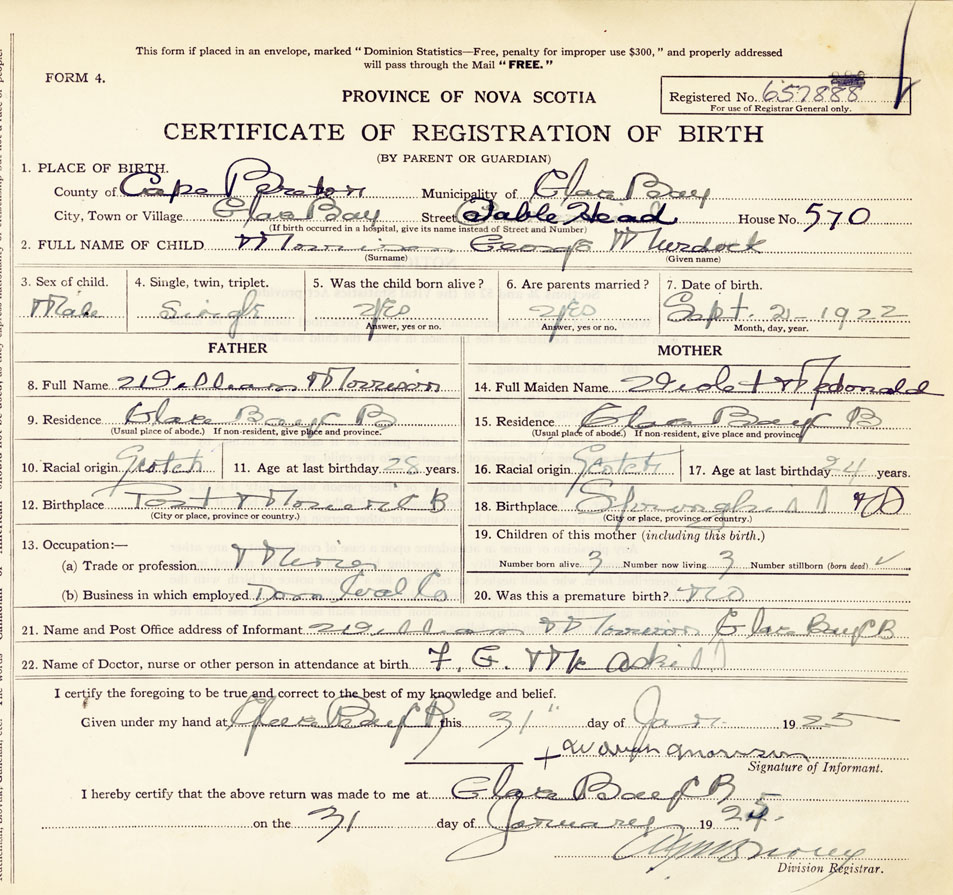 This form if placed in an envelope, marked “ Dominion Statistics—Free, penalty for improper use $300, ” and properly addressed
will pass through the Mail “ FREE. ”
FORM 4.
PROVINCE OF NOVA SCOTIA
Registered No. 657888
For use of Registrar General only.
CERTIFICATE OF REGISTRATION OF BIRTH
(BY PARENT OR GUARDIAN)
1. PLACE OF BIRTH.
County of Cape Breton Municipality of Glace Bay
City, Town or Village Glace Bay Street Table Head House No. 570
(If birth occurred in a hospital, give its name instead of Street and Number)
2. FULL NAME OF CHILD Morrison George Murdock
(Surname) (Given name)
3. Sex of child. 4. Single, twin, triplet. 5. Was the child born alive? 6. Are parents married? 7. Date of birth.
Male Single Yes Yes Sept. 21-1922
Answer, yes or no. Answer, yes or no. Month, day, year.
FATHER MOTHER
8. Full Name William Morrison 14. Full Maiden Name Violet McDonald
9. Residence Glace Bay C B 15. Residence Glace Bay C B
(Usual place of abode.) If non-resident, give place and province. (Usual place of abode.) If non-resident, give place and province.
10. Racial origin Scotch 11. Age at last birthday 28 years. 16. Racial origin Scotch 17. Age at last birthday 24 years.
12. Birthplace Port Morien C B 18. Birthplace Springhill
(City or place, province or country.) (City or place, province or country.)
19. Children of this mother (including this birth.)
13. Occupation:—
(a) Trade or profession Miner Number born alive 3 Number now living 3 Number stillborn (born dead) ✓
(b) Business in which employed Dom Coal Co 20. Was this a premature birth? No
21. Name and Post Office address of Informant William Morrison Glace Bay C B
22. Name of Doctor, nurse or other person in attendance at birth F. G. McAskill
I certify the foregoing to be true and correct to the best of my knowledge and belief.
Given under my hand at Glace Bay C B this 31" day of Jan. 1925
+ Morrison
Signature of Informant.
I hereby certify that the above return was made to me at Glace Bay C B
on the 31 day of January 1925.
Division Registrar.